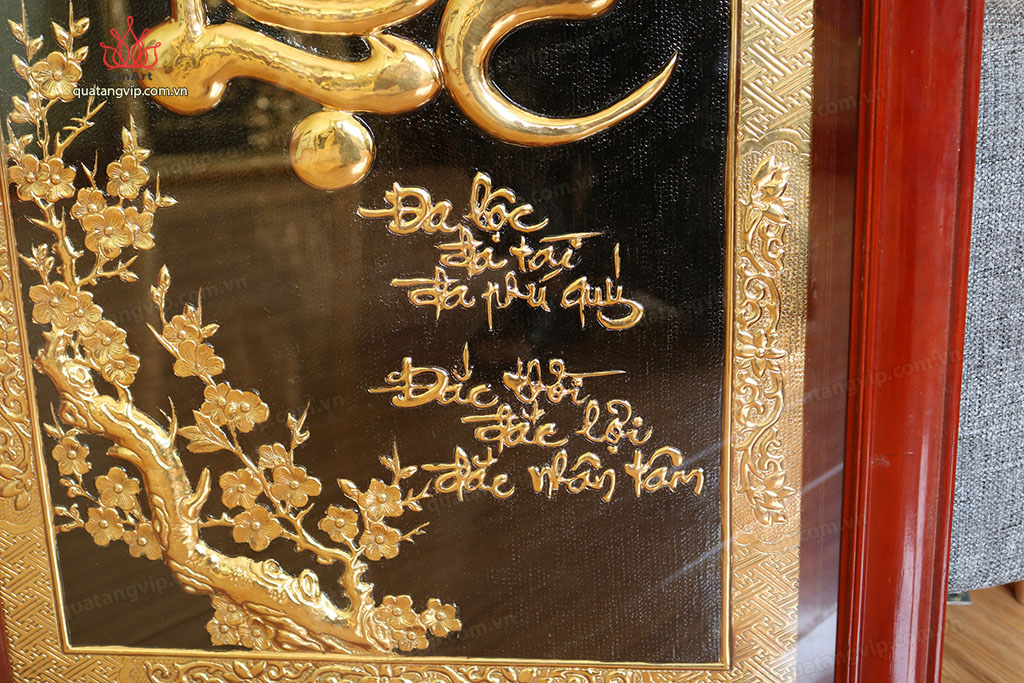 VinArt
quatangvip.com.vn
Đa lộc
đa tài
đa phú quý
Đắc thời
đắc lợi
đắc nhân tâm